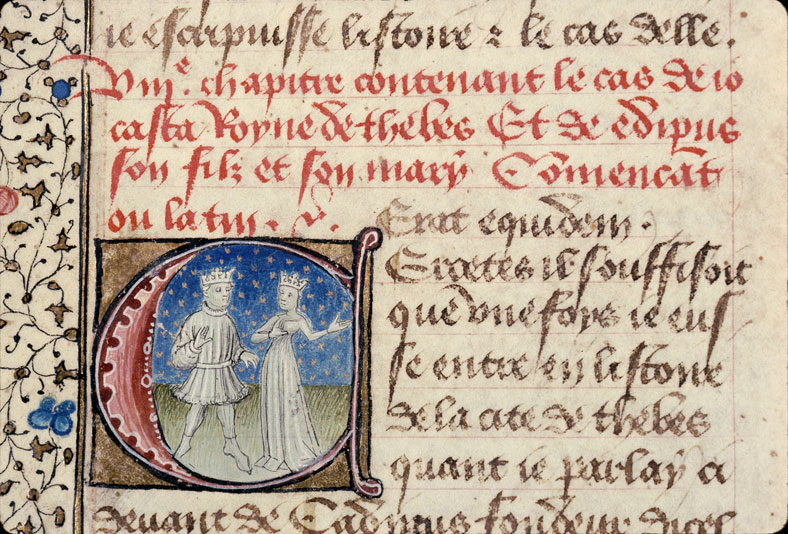 ie escripuisse listoire & le cas delle.
viiie. chapitre contenant le cas de io
casta Royne de thebes Et de edipus
son filz et son mary Comencat
ou latin. Erat equidem.
Certes il souffisoit
que vne foys ie eus
se entre en listoire
de la cite de thebes
quant ie parlay ci
deuant de Cadmus fondeur dicel